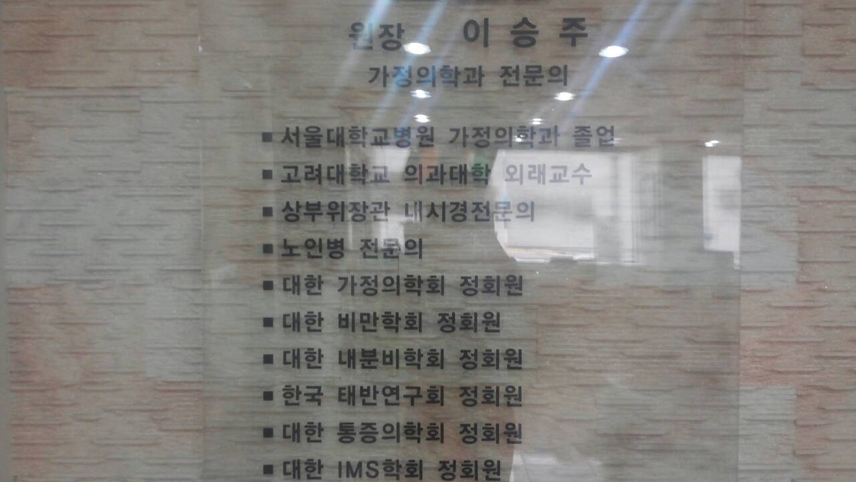 원장 이승주
가정의학과 전문의
■ 서울대학교병원 가정의학과 졸업
■ 고려대학교 의과대학 외래교수
■ 상부위장관 내시경전문의
■ 노인병 전문의
■ 대한 가정의학회 정회원
■ 대한 비만학회 정회원
■ 대한 내분비학회 정회원
■ 한국 태반연구회 정회원
■ 대한 통증의학회 정회원
■ 대한 IMS학회 정회원